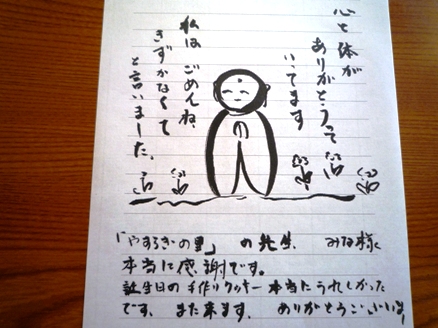 心と体が
ありがとうって
いってます
私は ごめんね、
きずかなくて
と言いました。
「やすらぎの里」 の先生、 みな様に
本当に感謝です。
誕生日の手作りクッキー 本当にうれしかった
です、 また来ます、 ありがとうございます